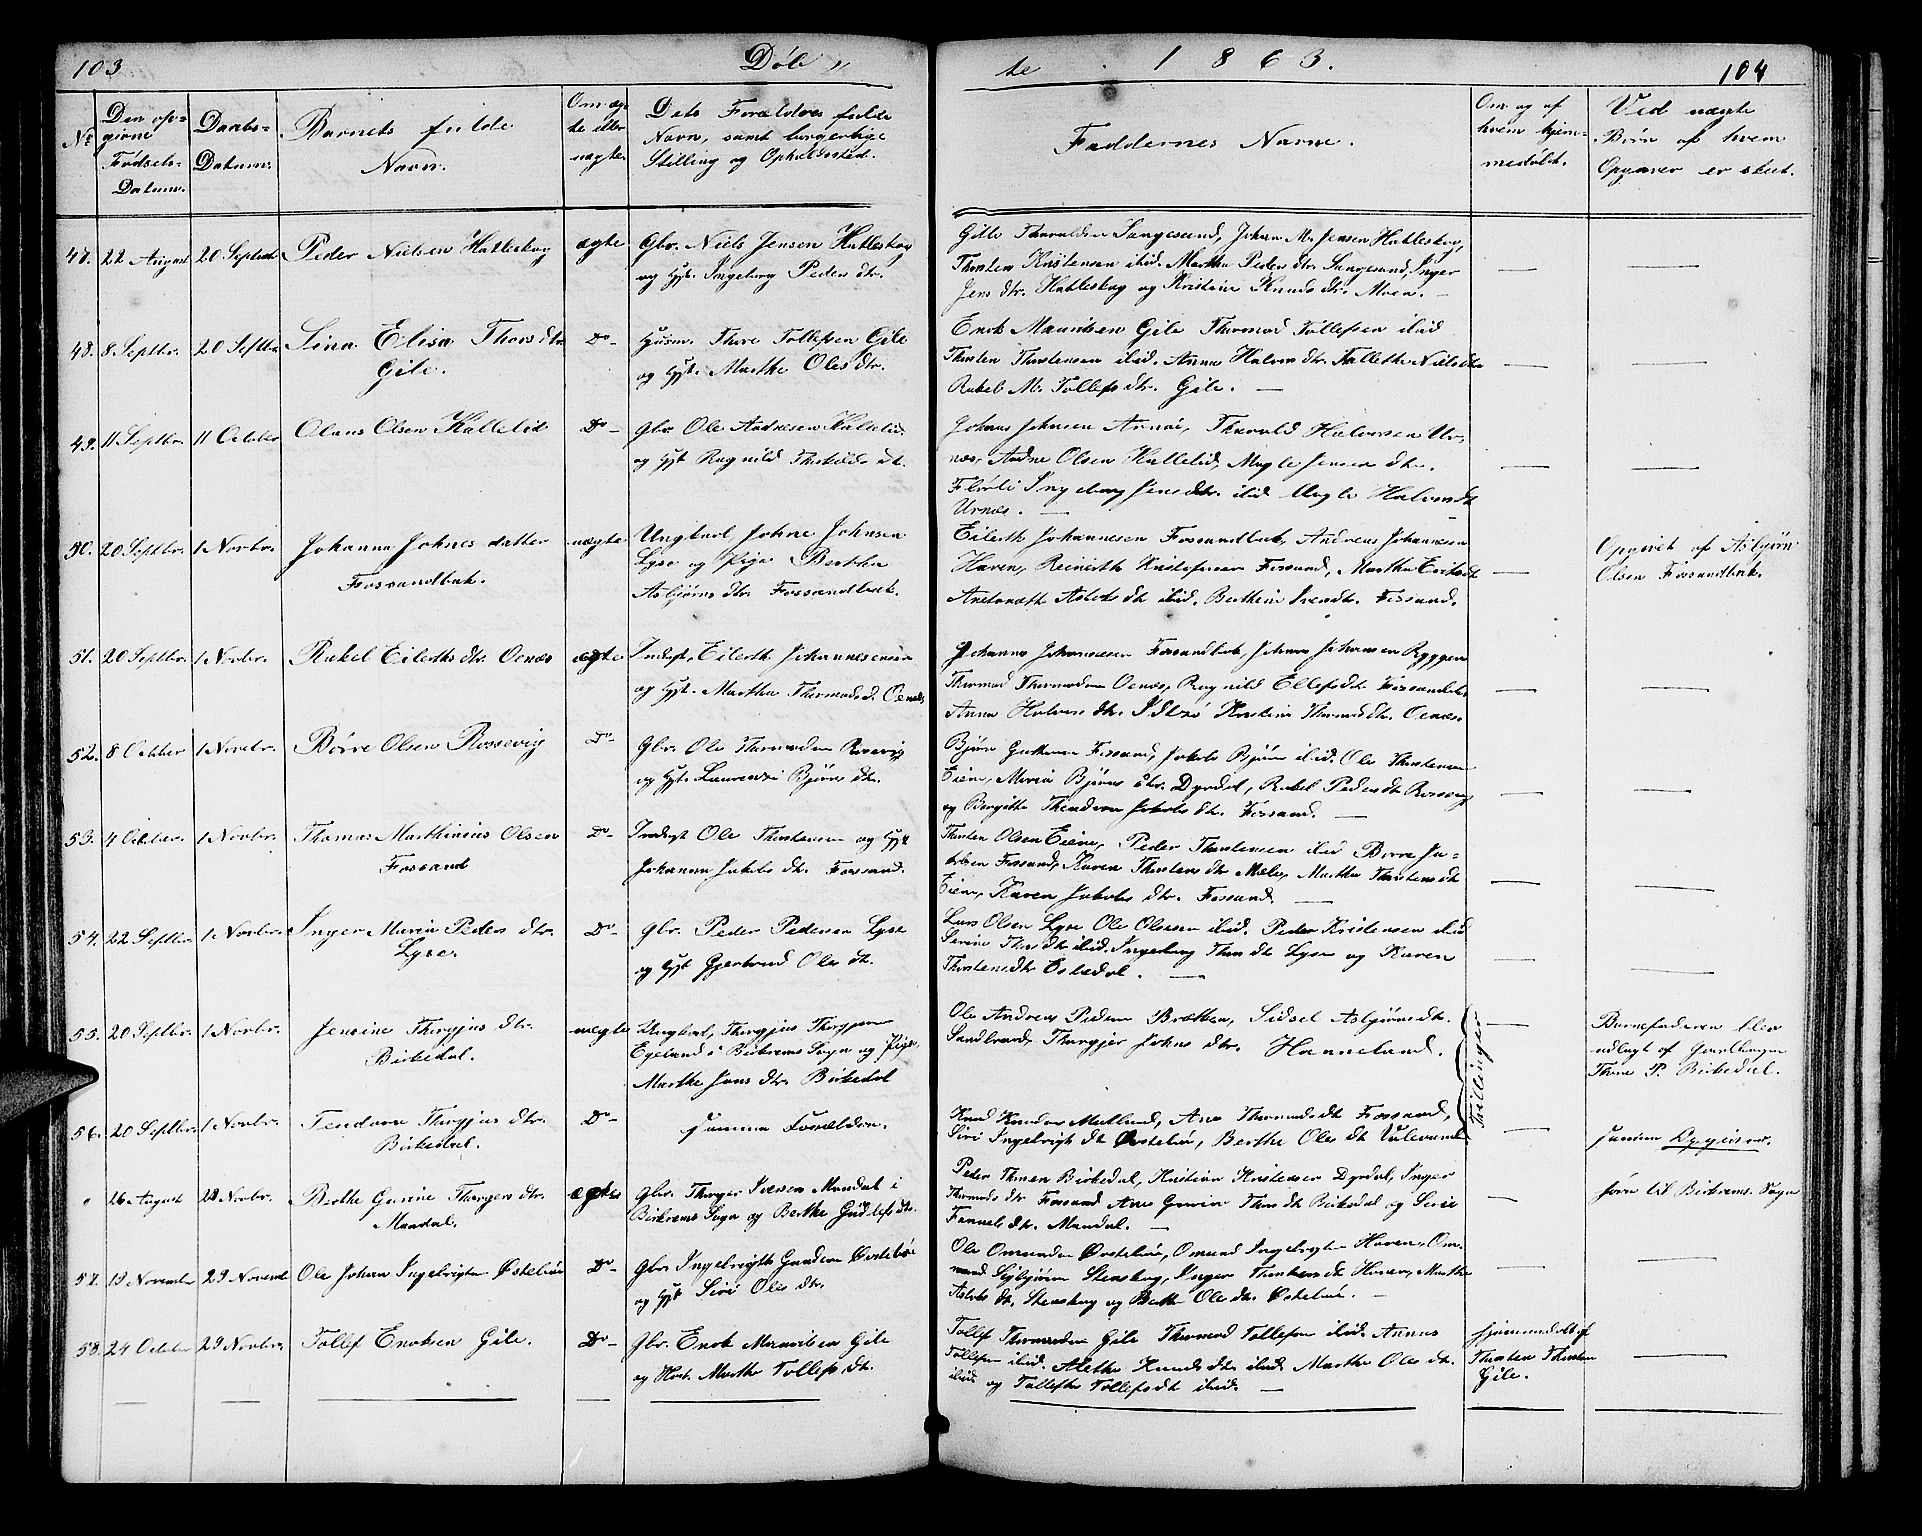 103
Døb
te
1863.
104
No
Den op-
givne
Fødsels-
Datum.
Daabs-
Datum.
Barnets fulde
Navn.
Om æg-
te eller
uægte.
Dets Forældres fulde
Navn, samt borgerlige
Stilling og Opholdssted.
Faddernes Navne.
Om og af
hvem hjem-
medøbt.
Ved uægte
Børn af hvem
Opgaver er skeet.
47. 22 August 20 Septbr Peder Nielsen Hatleskog ægte Gbr. Niels Jensen Hatleskog
og Hst. Ingeborg Peders dtr.
Johan M. Jensen Hatleskog,
Thosten Kristensen ibid. Martha Peders dtr. Inger
Jens dtr. Hatleskog og Kristine Knuds dtr. Moen.
48. 8 Septbr. 20 Septbr Sina Elisa Thors dtr
Gile.
Do
Husm. Thore Tollefsen Gile
og Hst. Marthe Oles dtr.
Enok Mauritsen Gile Thormod Tollefsen ibid
Thosten Thostensen ibid. Anna Halvors dtr. Nielsdtr
Rakel M. Tollefs dtr. Gile.
49. 11 Septbr. 11 October Olaus Olsen Kallelid Do
Gbr. Ole Andresen Kallelid
og Hst Ragnild dt.
Johnsen Thorvald Halvorsen Ur-
næs, Andre Olsen Kallelid, Jensen dtr.
Flørli Ingeborg Jensdtr. ibid Halvorsdt
Urnæs.
50. 20 Septbr. 1 Novbr. Johanna Johnes datter
Fossandbak.
uægte
Ungkarl Johne Johnsen
Lyse og Pige Bertha
Asbjørns dtr Fossandbak.
Eilerth Johannesen Fossandbak, Andreas Johannesen
Haven, Reinerth Kristofersen Fossand, Martha Eriksdt
ibid. Fossand.
Opgivet af Asbjørn
Olsen Fossandbak.
51. 20 Septbr. 1 Novbr. Rakel Eilerths dtr. Oenæs ægte
Inderst, Eilerth Johannesensen
og Hst. Martha Thormodsd. Oenæs
Johannes Johannesen Fossandbak, Johannes Johansen Ryggen
Thormod Oenæs, Ragnild Ellefsdt
Anna Halvors dtr. Kristine Thormodsdt. Oenæs.
52. 8 October 1 Novbr. Børre Olsen Rossevig Do
Gbr. Ole Thormodsen Rossevig
og Hst. Bjørns dt.
Bjørn Fossand, Jakob Bjørns ibid. Ole Thostensen
Eiene, Maria Bjørns dtr. Dyrdal, Rakel Pedersdt Rossevig
og Bergitte Theodora Jakobs dt. Fossand.
53. 4 October. 1 Novbr. Thomas Marthinius Olsen
Fossand
Do
Inderst Ole Thostensen og Hst
Johanna Jakobs dt. Fossand.
Thosten Olsen Eiene, Peder Thostensen ibid Børre Ja-
kobsen Fossand, Karen Thostens dtr. Mæle, Martha Thostens dt
Eiene, Karen Jakobs dtr. Fossand
54. 22 Septbr 1 Novbr. Inger Maria Peders dtr.
Lyse.
Do
Gbr. Peder Pedersen Lyse
og Hst Gjertrud Oles dt.
Lars Olsen Lyse Ole Olesen ibid. Peder Kristensen ibid
Serine Thors dt ibid. Ingeborg Thors dt Lyse og Karen
Thostensdtr Eskedal.
55. 20 Septbr. 1 Novbr. Jensine Thorgjus dtr.
Birkedal.
uægte
Ungkarl, Thorgjus
Egeland i Birkrems Sogn og Pige,
Marthe Jons dtr. Birkedal
Ole Andreas Pedersen Brækken, Sidsel Asbjørns dt.
Johns dtr. Hanneland.
Tvillinger
Barnefaderen blev
udlagt af Gaardbruger
Thore P. Birkedal.
56. 20 Septbr. 1 Novbr. Teodora Thorgjus dtr.
Birkedal.
Do
samme Forældre.
Knud Knudsen Ane Thormodsdt Fossand,
Siri Ingebrigts dt Østebøe, Berthe Oles dt
samme Opgiver.
" 26 August 22 Novbr. Berthe Gurine Thorgers dtr.
Maudal.
ægte
Gbr. Thorger Iversen Maudal i
Birkrems Sogn og Berthe Gudlefs dt.
Peder Thorsen Birkedal, Kristian Kristensen Dyrdal, Inger
Thormods dtr Fossand Ane Gurine Thors dt Birkedal og Serie
dt. Maudal.
før til Birkrems Sogn
57. 13 November 29 Novemb Ole Johan Ingebrigtsen Østebøe Do
Gbr. Ingebrigth Gundersen Østebøe
og Hst Siri Oles dtr.
Ole Omundsen Østebøe, Omund Ingebrigtsen Haven, Om-
mund Stenskog, Inger dt Haven, Marthe
Aslaks dt. Stenskog og Berthe Oles dtr. Østebøe.
58. 24 October 29 Novbr. Tollef Enoksen Gile. Do
Gbr. Enok Mauritsen Gile
og Hust. Marthe Tollefs dt.
Tollef Thormodsen Gile Thormod Tollefsen ibid. Annas
Tollefsen ibid. Alethe Knuds dt ibid Marthe Oles dt.
ibid og Tollefs dt ibid.
hjemmedøbt af
Thosten Thosten
Gile.